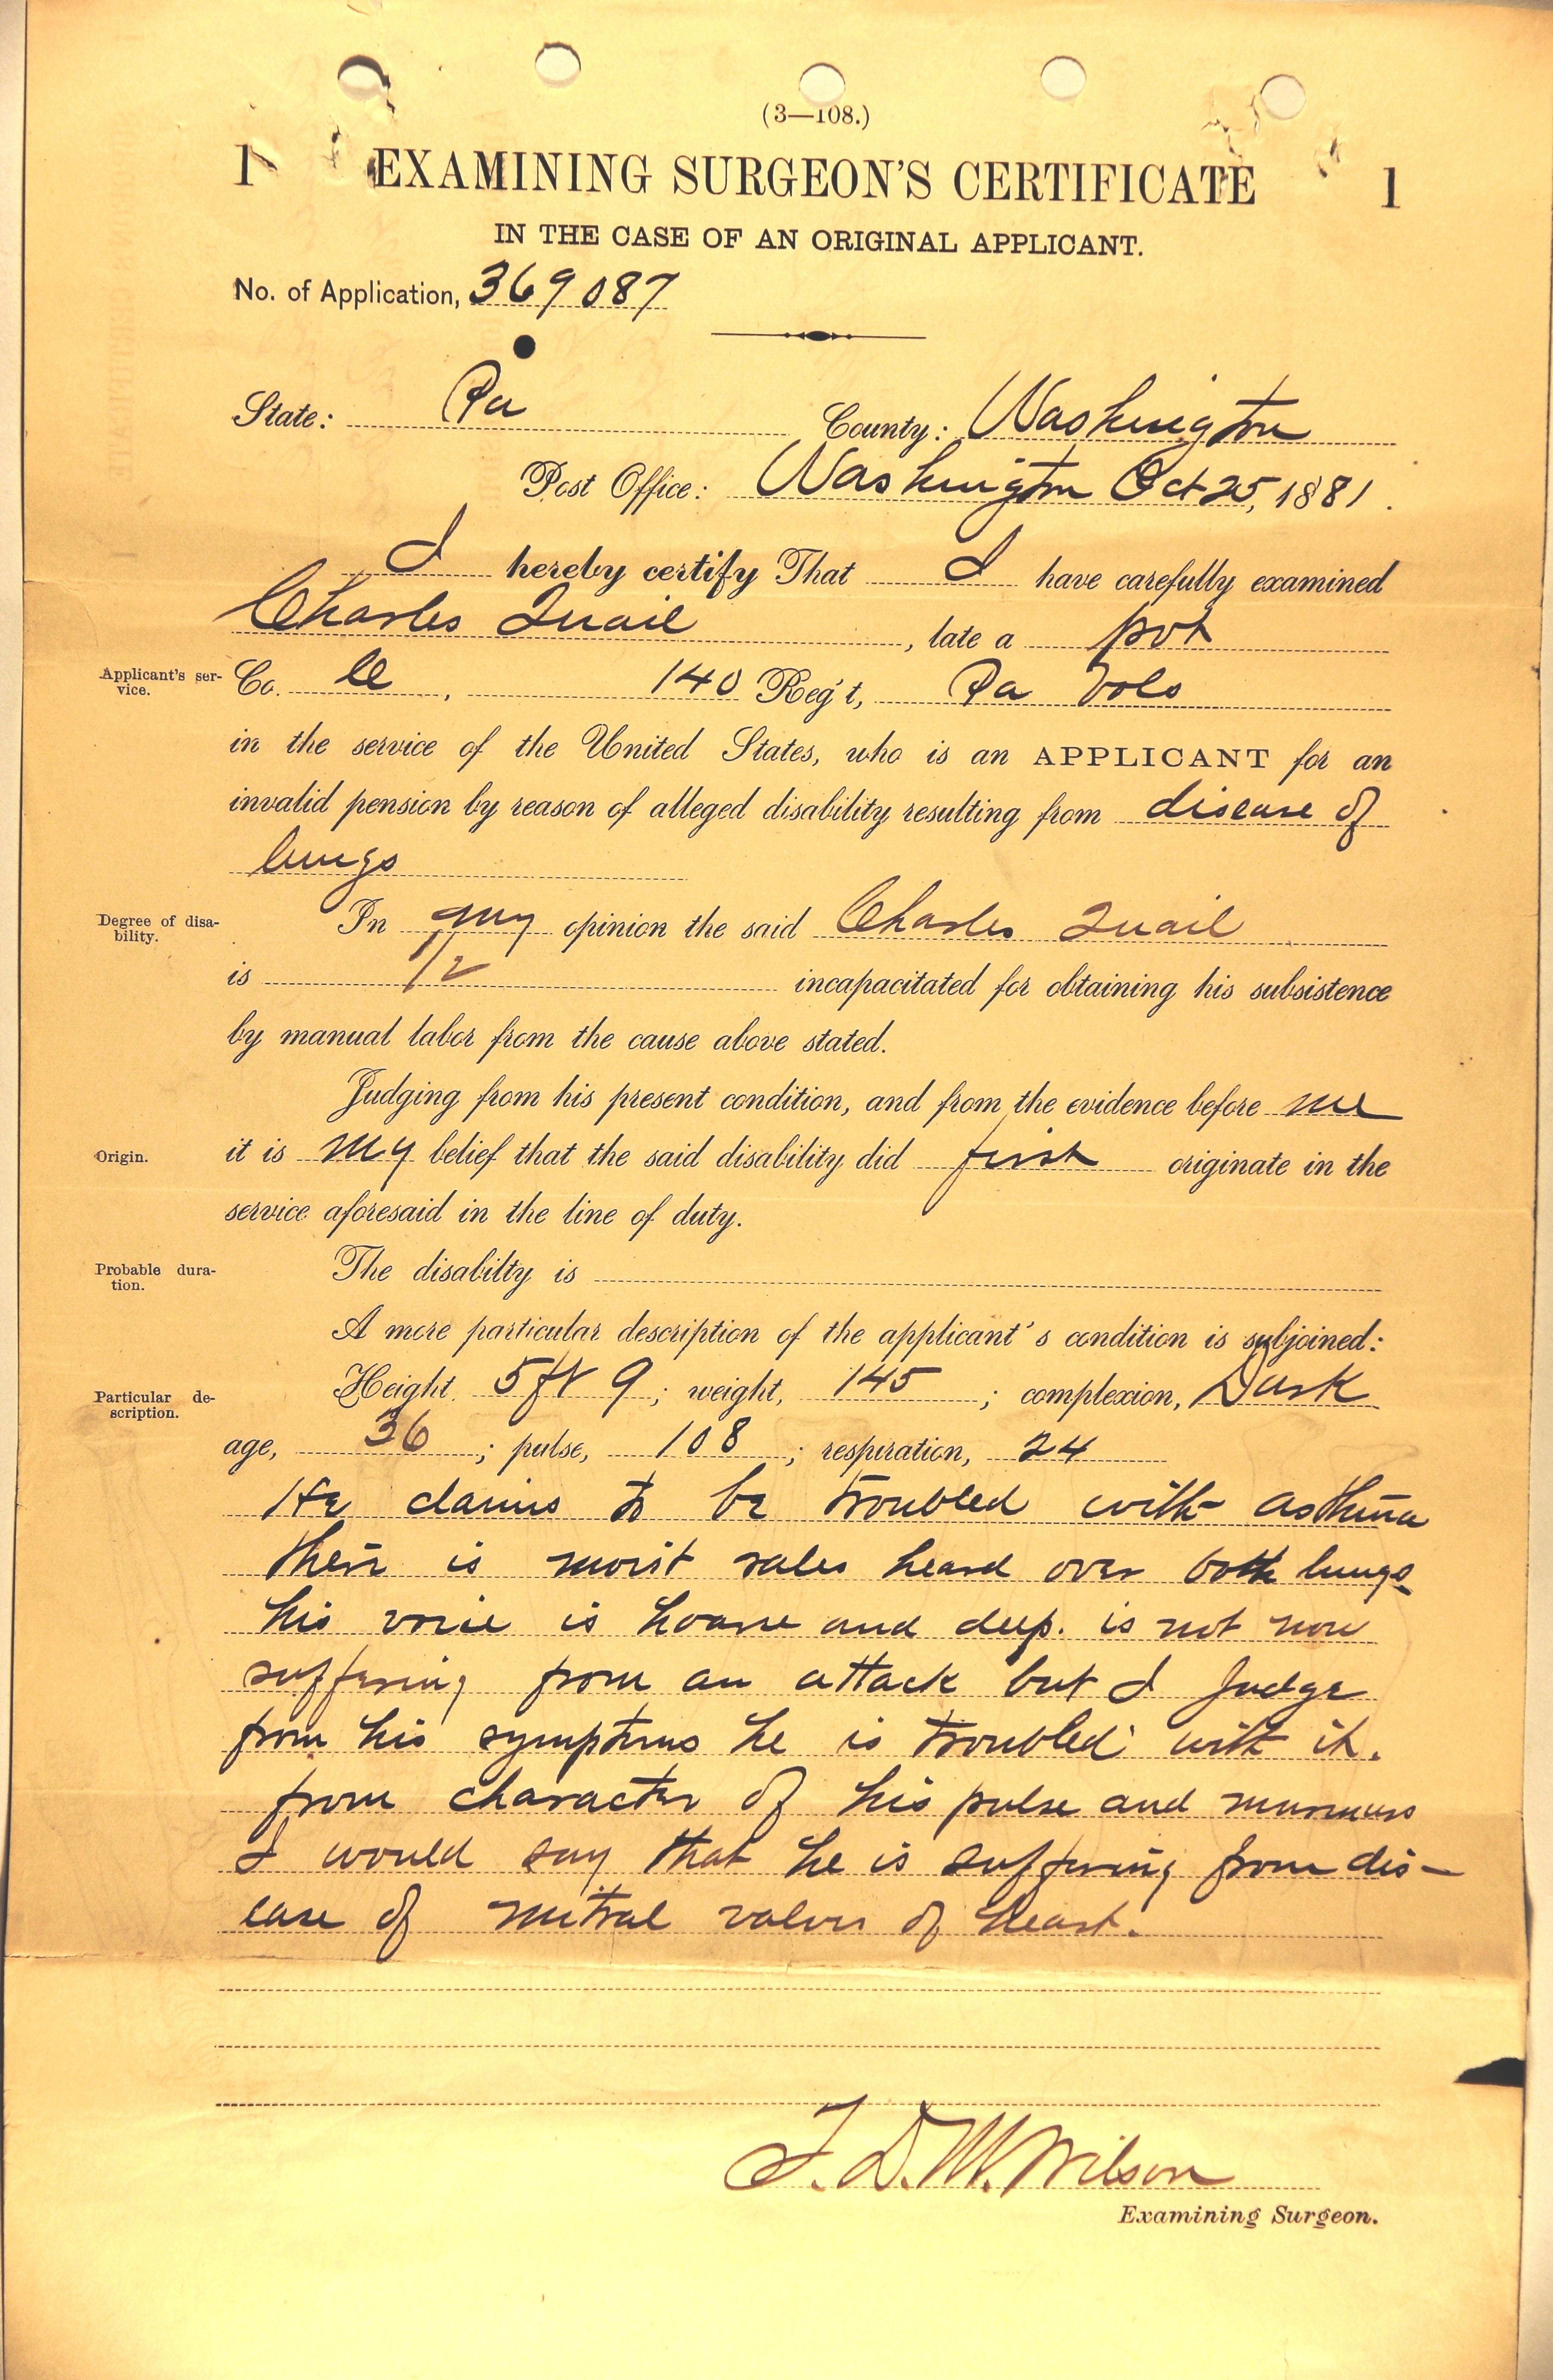 (3—108.)
1 EXAMINING SURGEON'S CERTIFICATE 1
IN THE CASE OF AN ORIGINAL APPLICANT.
No. of Application, 369087
State: Pa County: Washington
Post Office: Washington Oct 25, 1881.
I hereby certify That I have carefully examined
Charles Quail, late a pvt
Applicant's ser-
vice.
Co. C, 140 Reg't, Pa Vols
in the service of the United States, who is an APPLICANT for an
invalid pension by reason of alleged disability resulting from disease of
lungs
Degree of disa-
bility.
In my opinion the said Charles Quail
is 1/2 incapacitated for obtaining his subsistence
by manual labor from the cause above stated.
Judging from his present condition, and from the evidence before me
Origin.
it is my belief that the said disability did first originate in the
service aforesaid in the line of duty.
Probable dura-
tion.
The disabilty is
A more particular description of the applicant's condition is subjoined:
Particular de-
scription.
Height, 5 ft 9; weight, 145; complexion, Dark
age, 36; pulse, 108; respiration, 24
He claims to be troubled with asthma
their is moist rales heard over both lungs
his voice is hoarse and deep. is not now
suffering from an attack but I judge
from his symptoms he is troubled with it.
from character of his pulse and murmurs
I would say that he is suffering from dis-
ease of mitral valves of heart.
T. D. M. Wilson
Examining Surgeon.